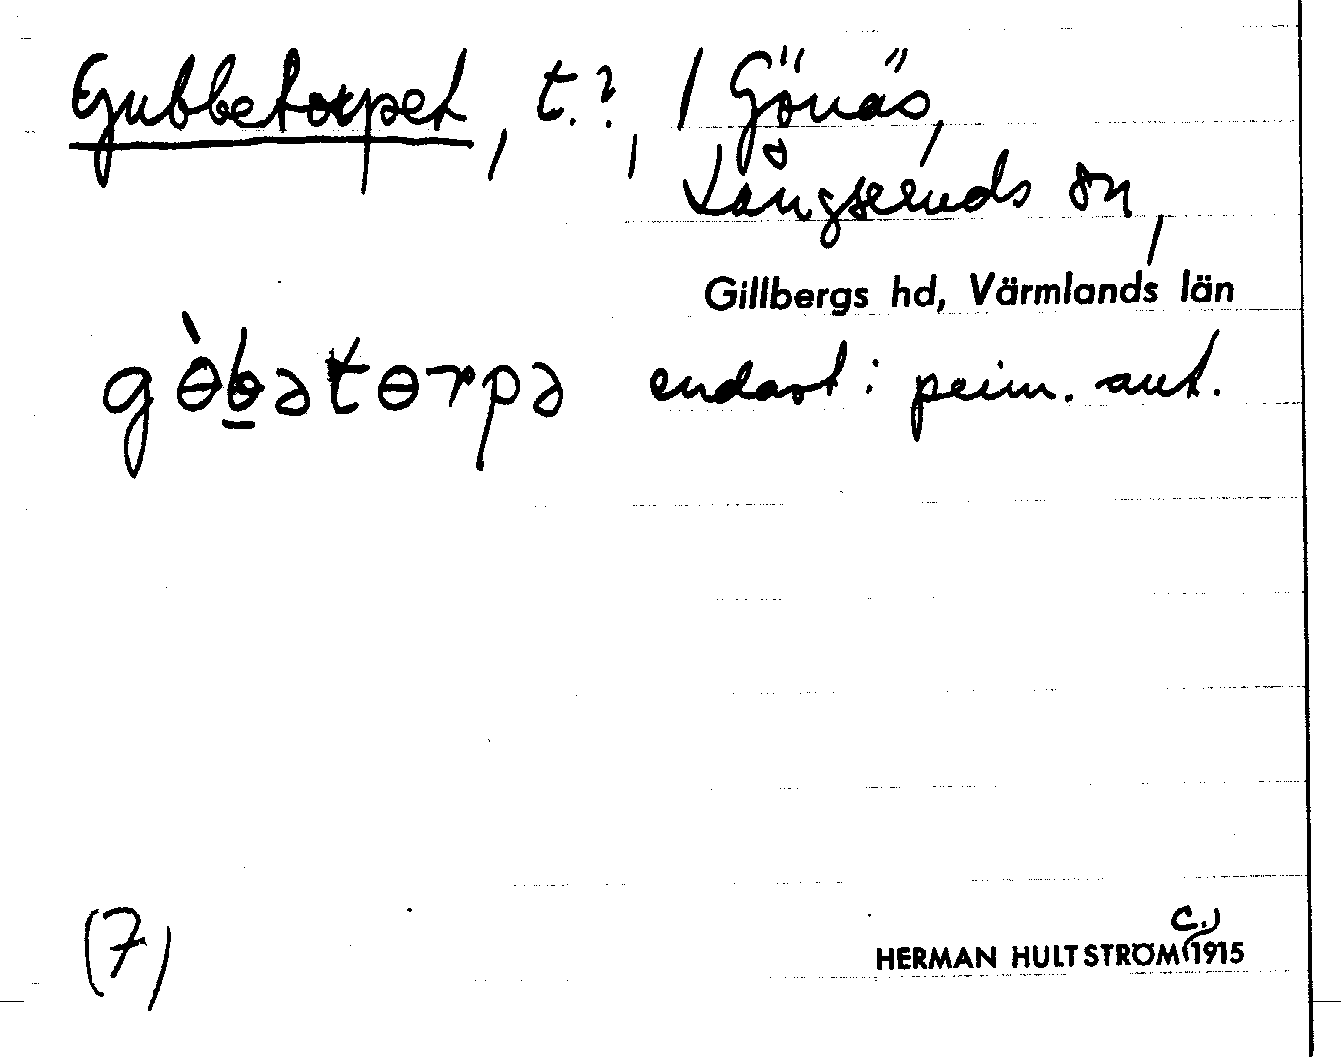 Gubbetorpet, t.?, / Gönäs,
Långseruds sn,
Gillbergs hd, Värmlands län
gɵ̀b̲ətɵrpə endast i prim. ant.
(7)
c.)
HERMAN HULTSTRÖM 1915